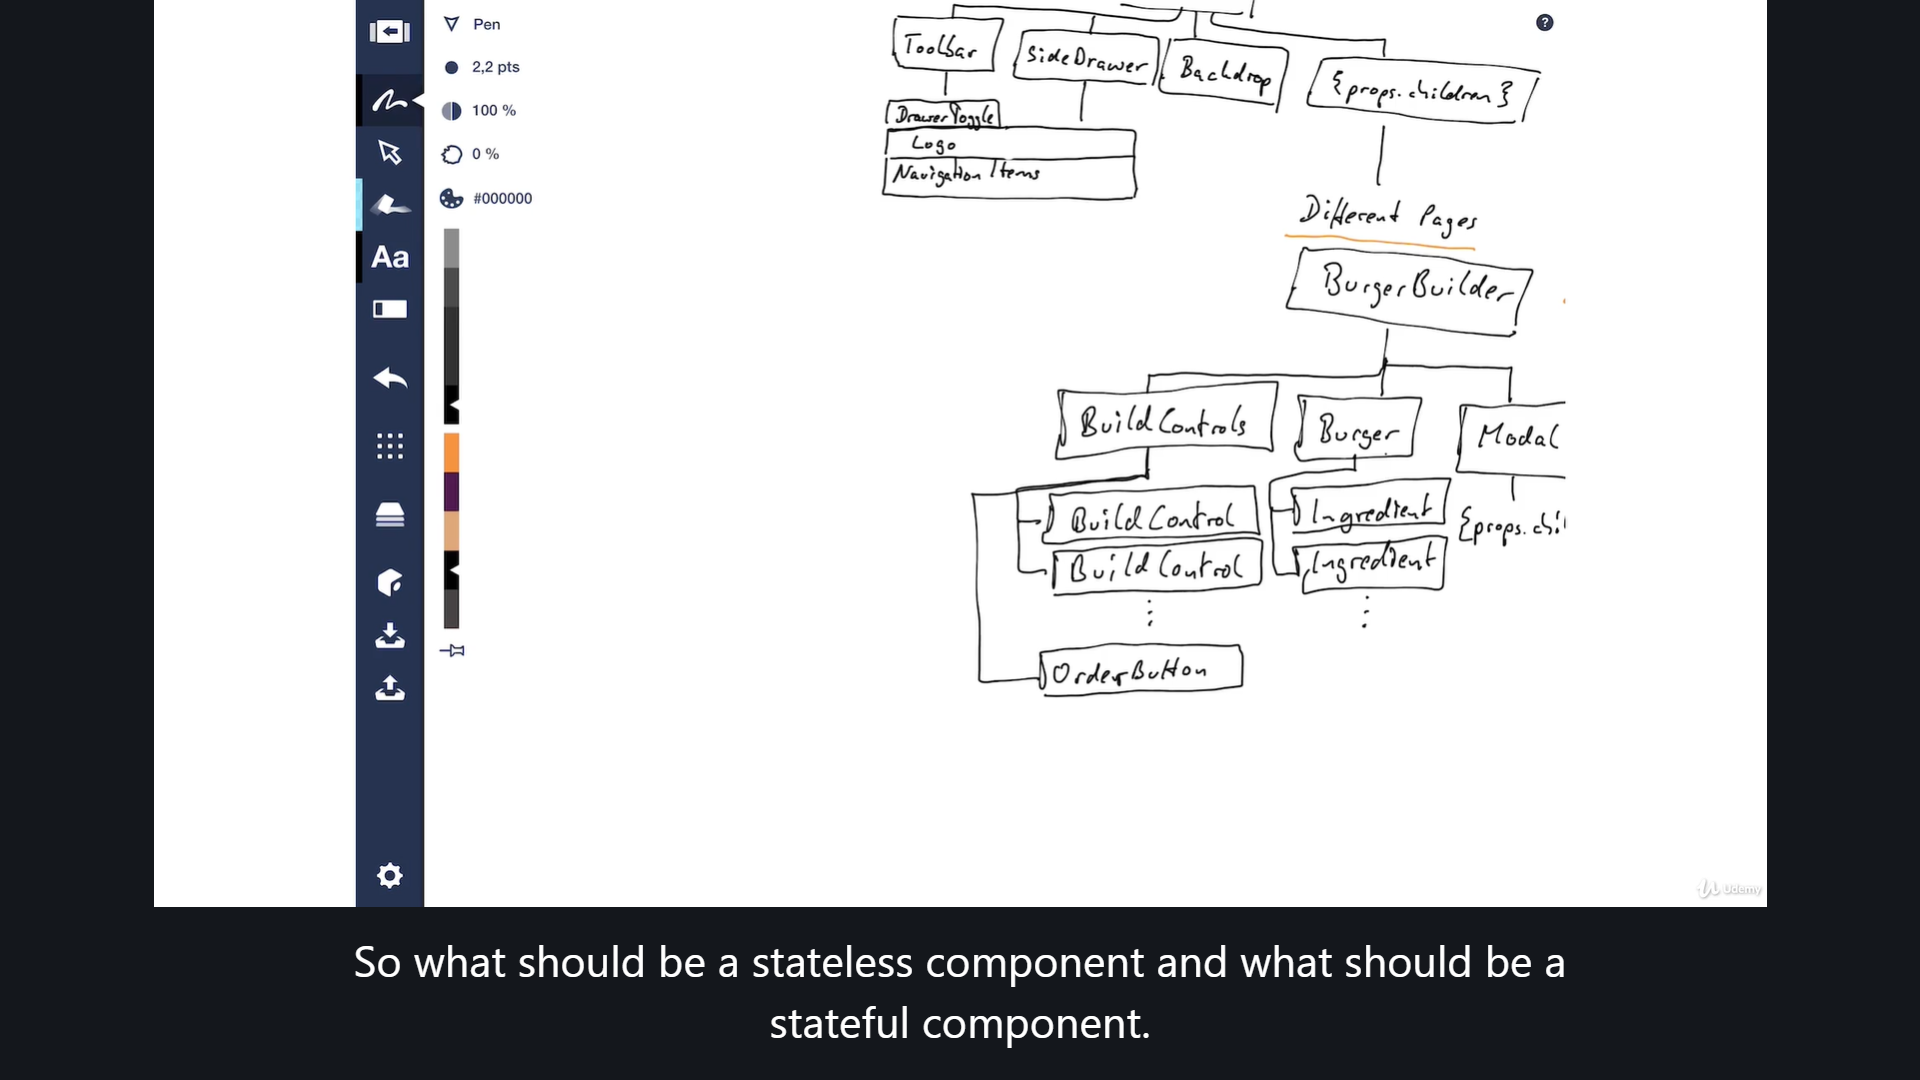 Pen
2,2 pts
100 %
0 %
#000000
Aa
?
Toolbar
SideDrawer
Backdrop
{props.children}
DrawerToggle
Logo
Navigation Items
Different Pages
BurgerBuilder
BuildControls
Burger
Modal
BuildControl
Ingredient
{props.chi
BuildControl
Ingredient
OrderButton
Udemy
So what should be a stateless component and what should be a
stateful component.